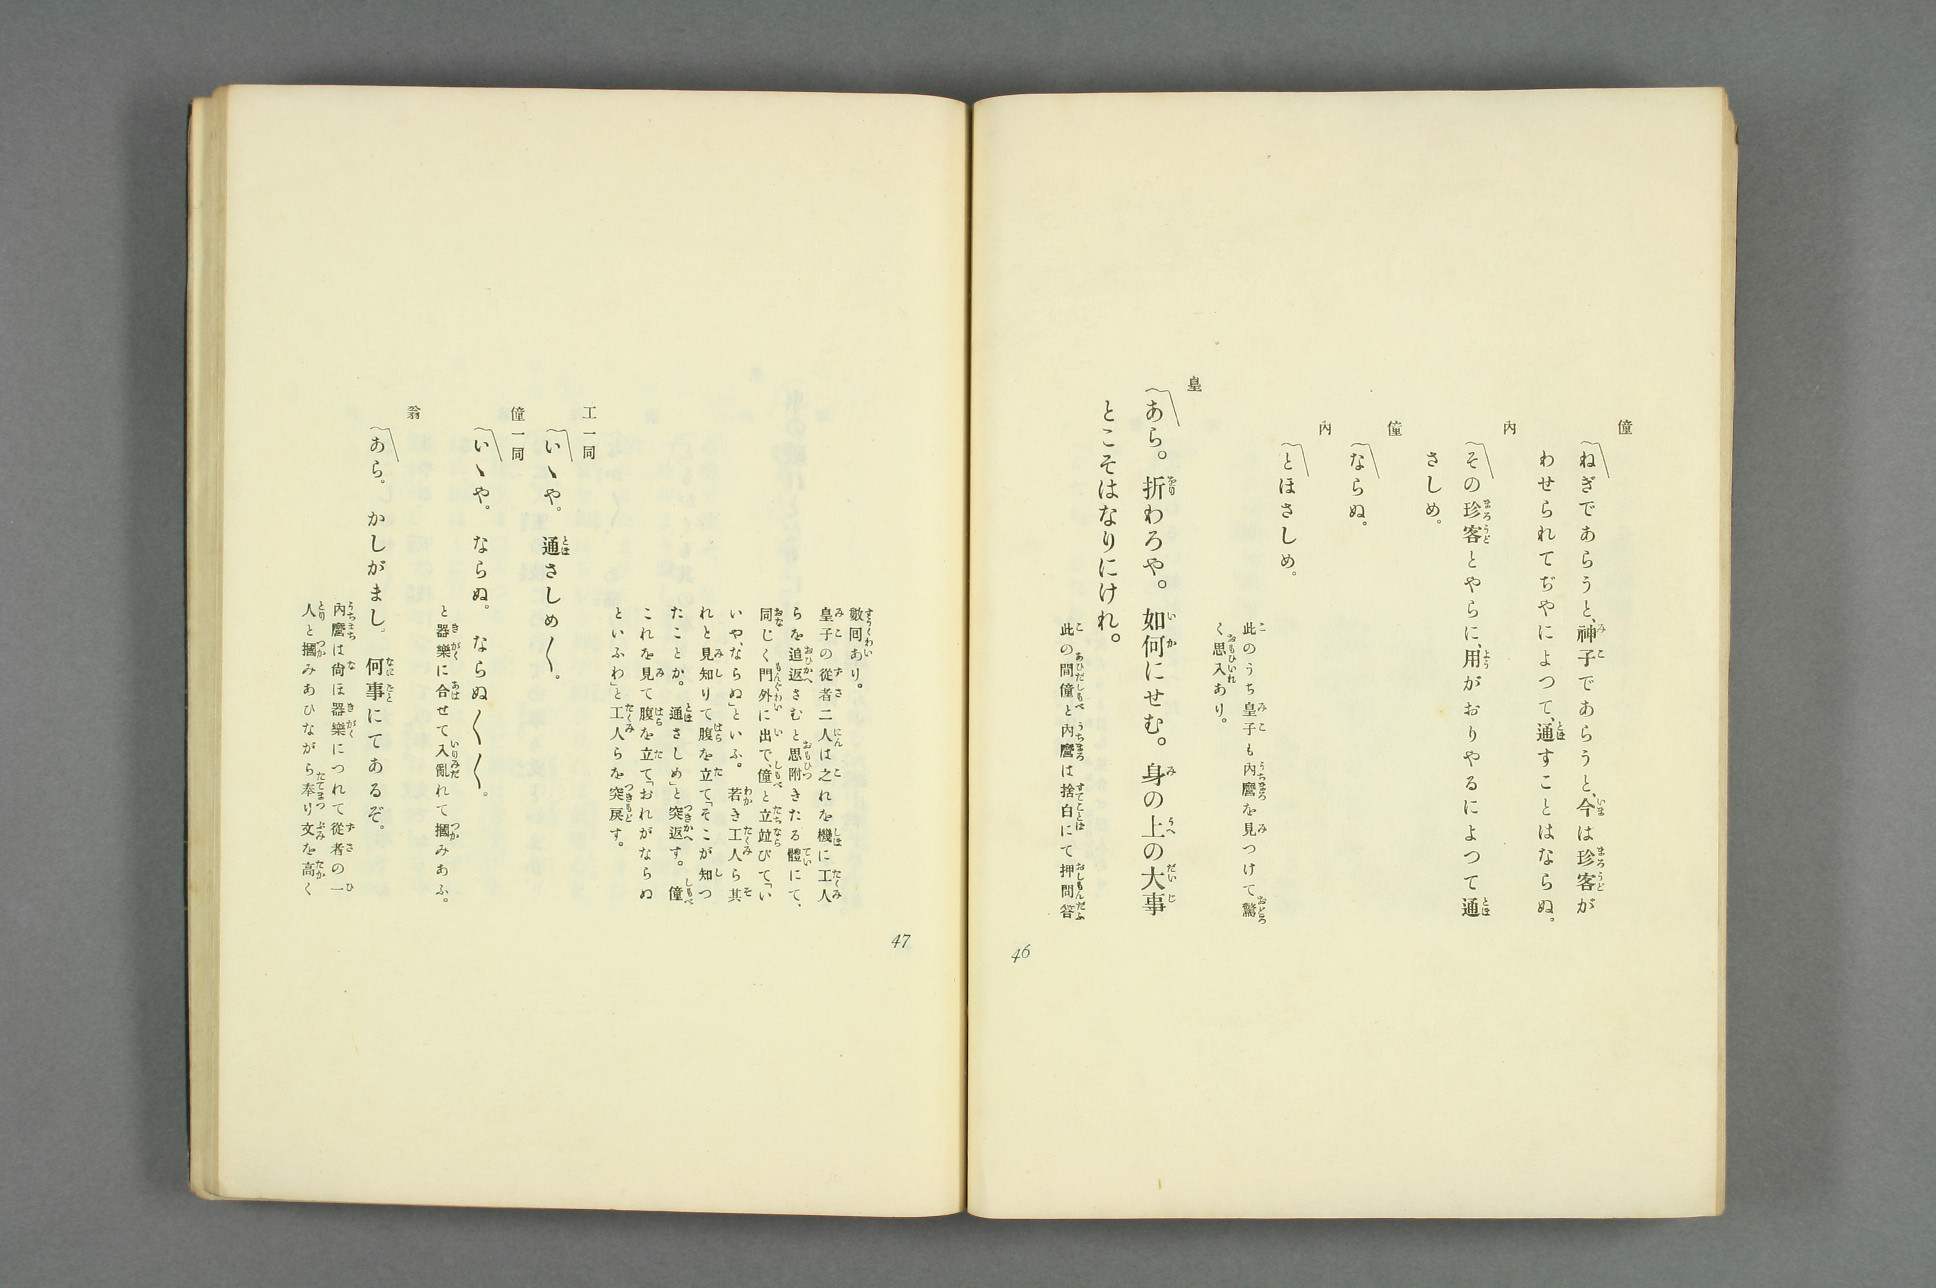 僮
ねぎであらうと、神子であらうと、今は珍客が
わせられてぢやによつて、通すことはならぬ。
內
その珍客とやらに、用がおりやるによつて通
さしめ。
僮
ならぬ。
內
とほさしめ。
此のうち皇子も內麿を見つけて驚
く思入あり。
皇
あら。折わろや。如何にせむ。身の上の大事
とこそはなりにけれ。
此の間僮と內麿は捨白にて押問答
46
數囘あり。
皇子の從者二人は之れを機に工人
らを追返さむと思附きたる體にて、
同じく門外に出で、僮と立竝びて「い
いや、ならぬ」といふ。若き工人ら其
れと見知りて腹を立て「そこが知つ
たことか。通さしめ」と突返す。僮
これを見て腹を立て「おれがならぬ
といふわ」と工人らを突戾す。
工一同
いゝや。通さしめ〱。
僮一同
いゝや。ならぬ。ならぬ〱〱。
と器樂に合せて入亂れて摑みあふ。
翁
あら。かしがまし。何事にてあるぞ。
內麿は尙ほ器樂につれて從者の一
人と摑みあひながら奉り文を高く
47